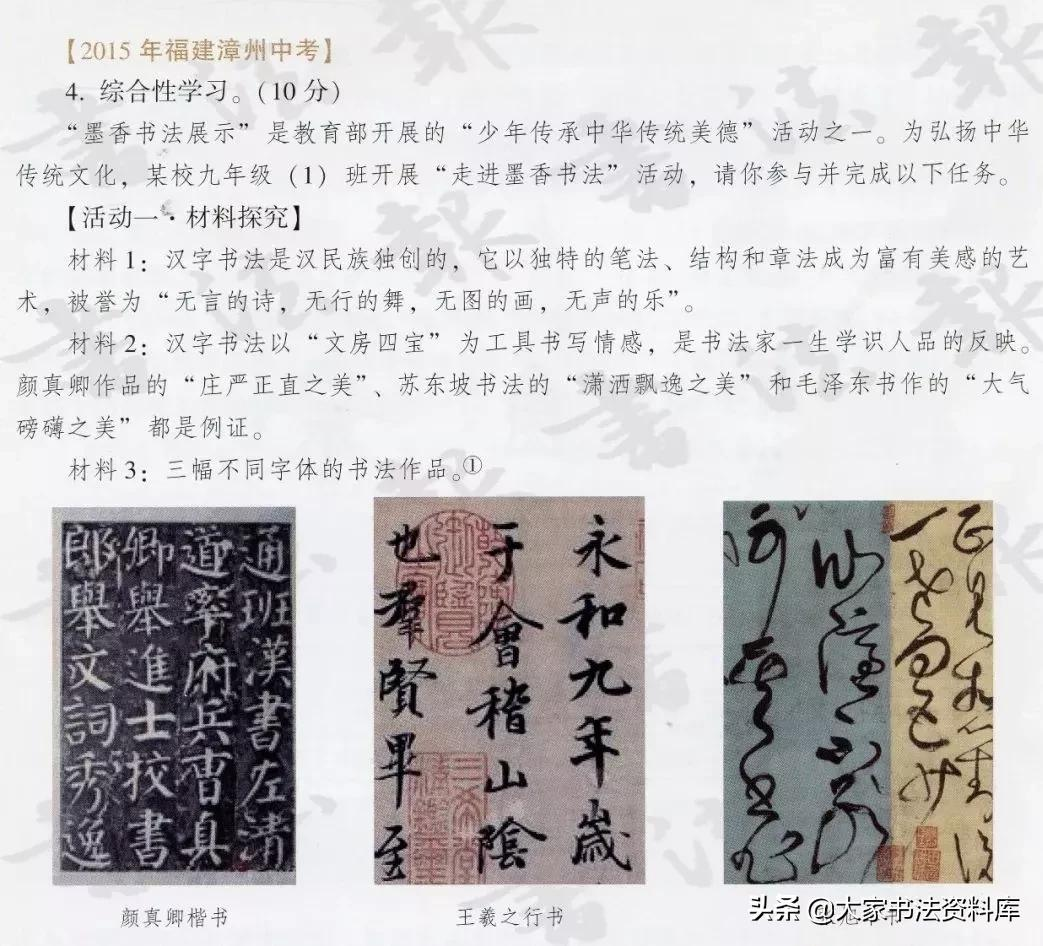 【2015 年福建漳州中考】
4. 综合性学习。(10 分)
“墨香书法展示”是教育部开展的“少年传承中华传统美德”活动之一。为弘扬中华
传统文化，某校九年级（1）班开展“走进墨香书法”活动，请你参与并完成以下任务。
【活动一·材料探究】
材料 1：汉字书法是汉民族独创的，它以独特的笔法、结构和章法成为富有美感的艺
术，被誉为“无言的诗，无行的舞，无图的画，无声的乐”。
材料 2：汉字书法以“文房四宝”为工具书写情感，是书法家一生学识人品的反映。
颜真卿作品的“庄严正直之美”、苏东坡书法的“潇洒飘逸之美”和毛泽东书作的“大气
磅礴之美”都是例证。
材料 3：三幅不同字体的书法作品。①
通班漢書左清
道率府兵曹真
卿舉進士校書
郎舉文詞秀逸
永和九年歲
于會稽山陰
也羣賢畢至
颜真卿楷书
王羲之行书
头条 @大家书法资料库